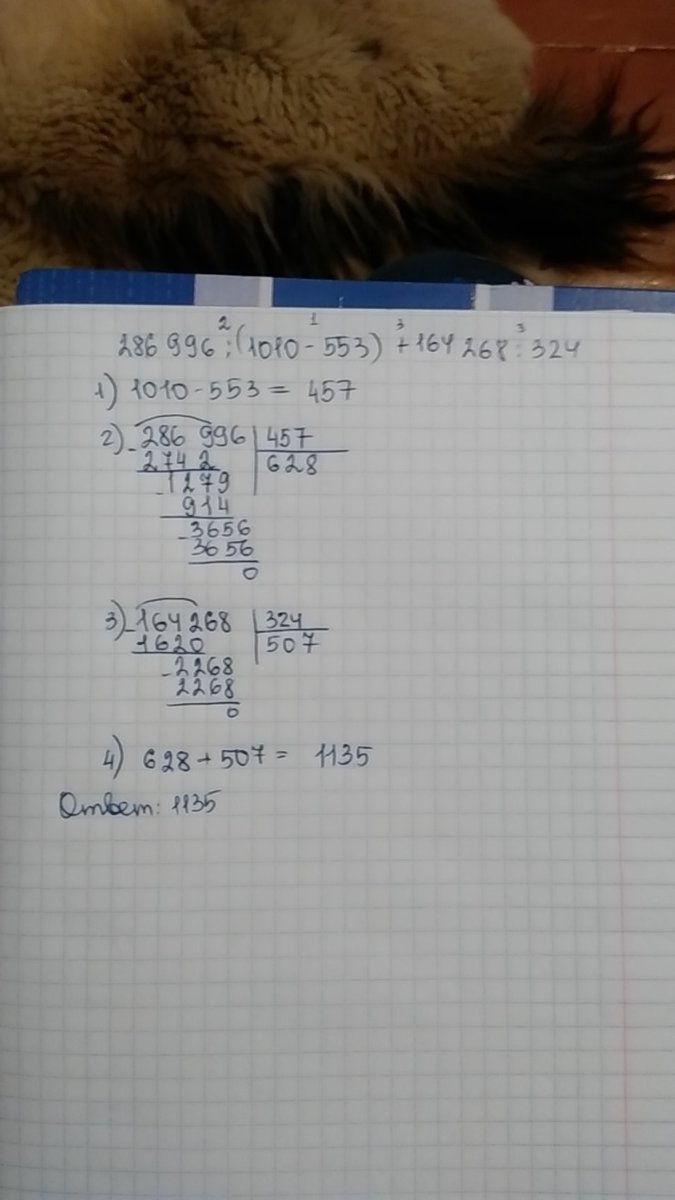 2 1 3 3
286 996 : (1010 - 553) + 164 268 : 324
1) 1010 - 553 = 457
2) - 286 996 | 457
2742 | 628
- 1279
914
- 3656
3656
0
3) - 164268 | 324
1620 | 507
- 2268
2268
0
4) 628 + 507 = 1135
Ответ: 1135